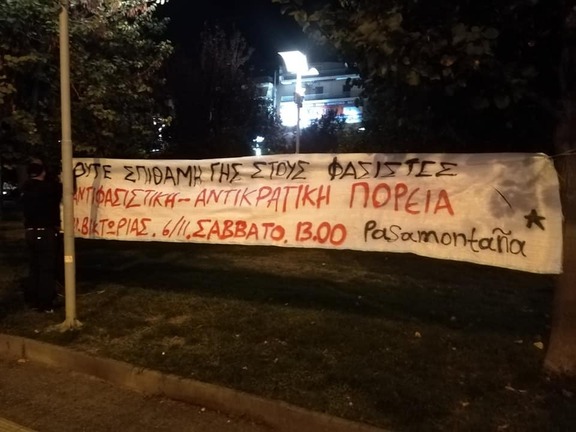 ΟΥΤΕ ΣΠΙΘΑΜΗ ΓΗΣ ΣΤΟΥΣ ΦΑΣΙΣΤΕΣ
ΑΝΤΙΦΑΣΙΣΤΙΚΗ-ΑΝΤΙΚΡΑΤΙΚΗ ΠΟΡΕΙΑ
Π.ΒΙΚΤΩΡΙΑΣ. 6/11. ΣΑΒΒΑΤΟ. 13.00 Pasamontaña